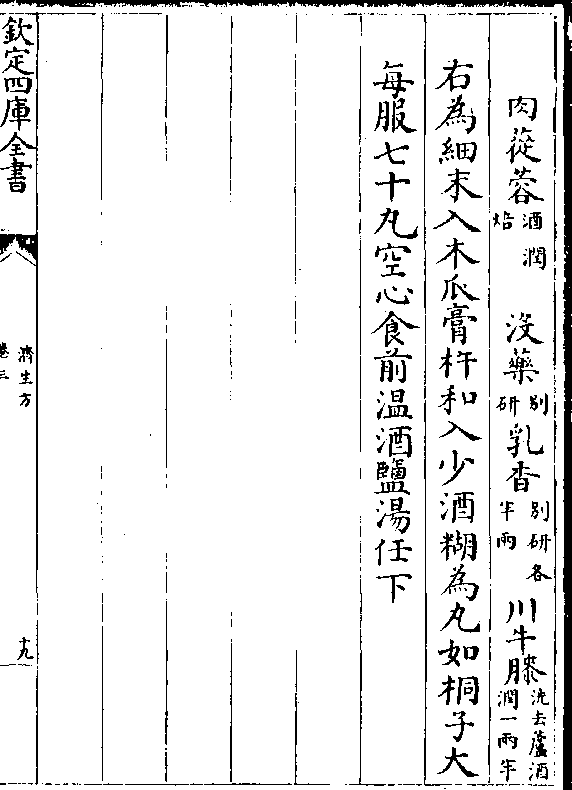 肉蓯蓉酒潤焙 沒藥別研 乳香別研各半兩 川牛膝洗去蘆酒潤一兩半
右為細末入木瓜膏杵和入少酒糊為丸如桐子大
每服七十丸空心食前温酒鹽湯任下
欽定四庫全書
濟生方
卷三
十九